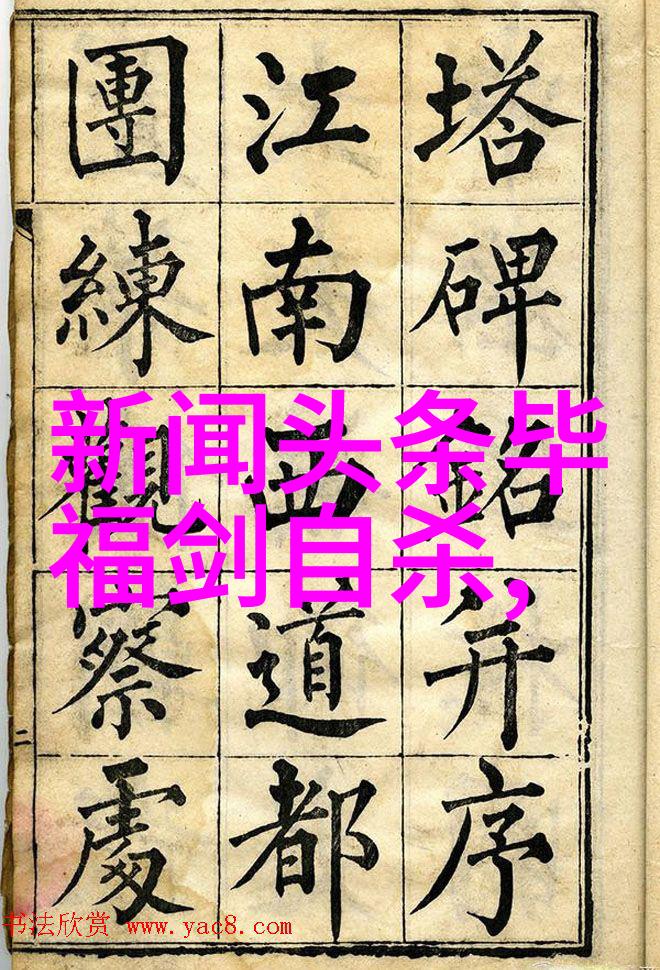 塔碑銘并序
江南西道都
團練觀察處
二
新闻头条毕
福剑自杀,
书法欣赏 www.yac8.com